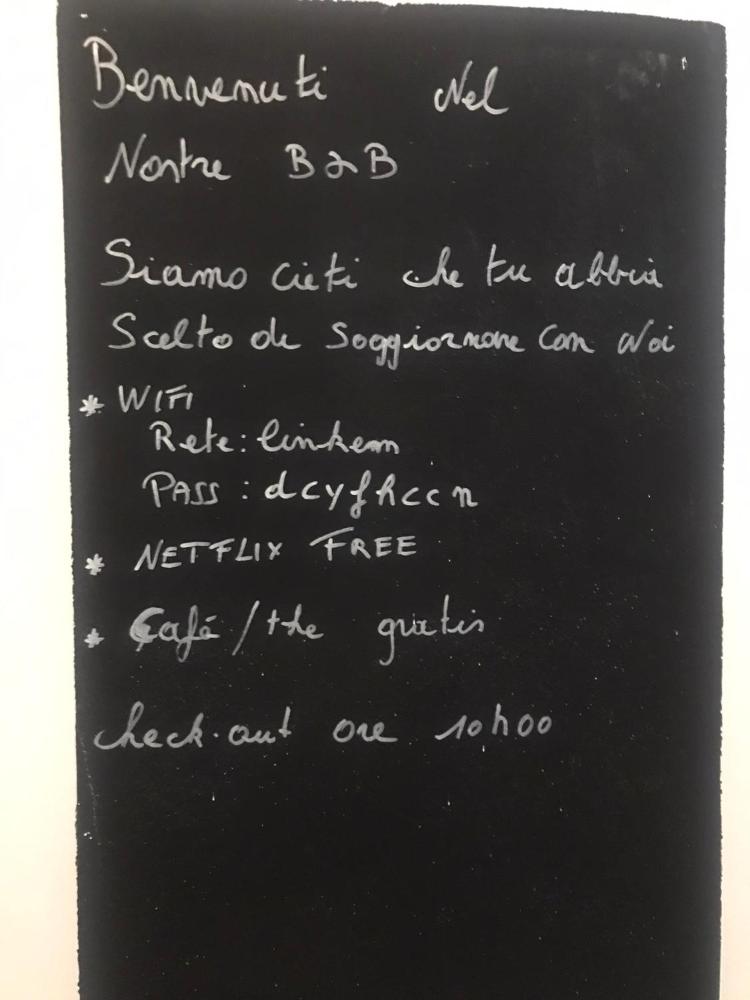 Benvenuti Nel
Nostre B&B
Siamo cieti che tu abbia
Scelto de soggiornare con Noi
* WIFI
Rete: linkem
PASS : dcyfhccn
* NETFLIX FREE
* Café/the gratis
check-out ore 10h00